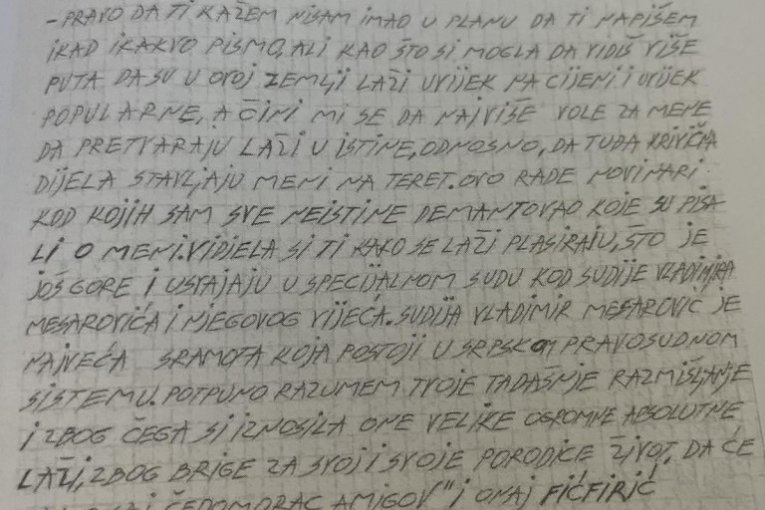 -PRAVO DA TI KAŽEM NISAM IMAO U PLANU DA TI NAPIŠEM
IKAD IKAKVO PISMO, ALI KAO ŠTO SI MOGLA DA VIDIŠ VIŠE
PUTA DA SU U OVOJ ZEMLJI LAŽI UVIJEK NA CIJENI I UVIJEK
POPULARNE, A ČINI MI SE DA NAJVIŠE VOLE ZA MENE
DA PRETVARAJU LAŽI U ISTINE, ODNOSNO, DA TUĐA KRIVIČNA
DIJELA STAVLJAJU MENI NA TERET. OVO RADE NOVINARI
KOD KOJIH SAM SVE NEISTINE DEMANTOVAO KOJE SU PISA
LI O MENI. VIDJELA SI TI KAKO SE LAŽI PLASIRAJU, ŠTO JE
JOŠ GORE I USVAJAJU U SPECIJALNOM SUDU KOD SUDIJE VLADIMIRA
MESAROVIĆA I NJEGOVOG VIJEĆA. SUDIJA VLADIMIR MESAROVIĆ JE
NAJVEĆA SRAMOTA KOJA POSTOJI U SRPSKOM PRAVOSUDNOM
SISTEMU. POTPUNO RAZUMEM TVOJE TADAŠNJE RAZMIŠLJANJE
I ZBOG ČEGA SI IZNOSILA ONE VELIKE OGROMNE ABSOLUTNE
LAŽI, ZBOG BRIGE ZA SVOJ I SVOJE PORODICE ŽIVOT, DA ĆE
ČEDOMORAC AMIGOV" I ONAJ FIĆFIRIĆ